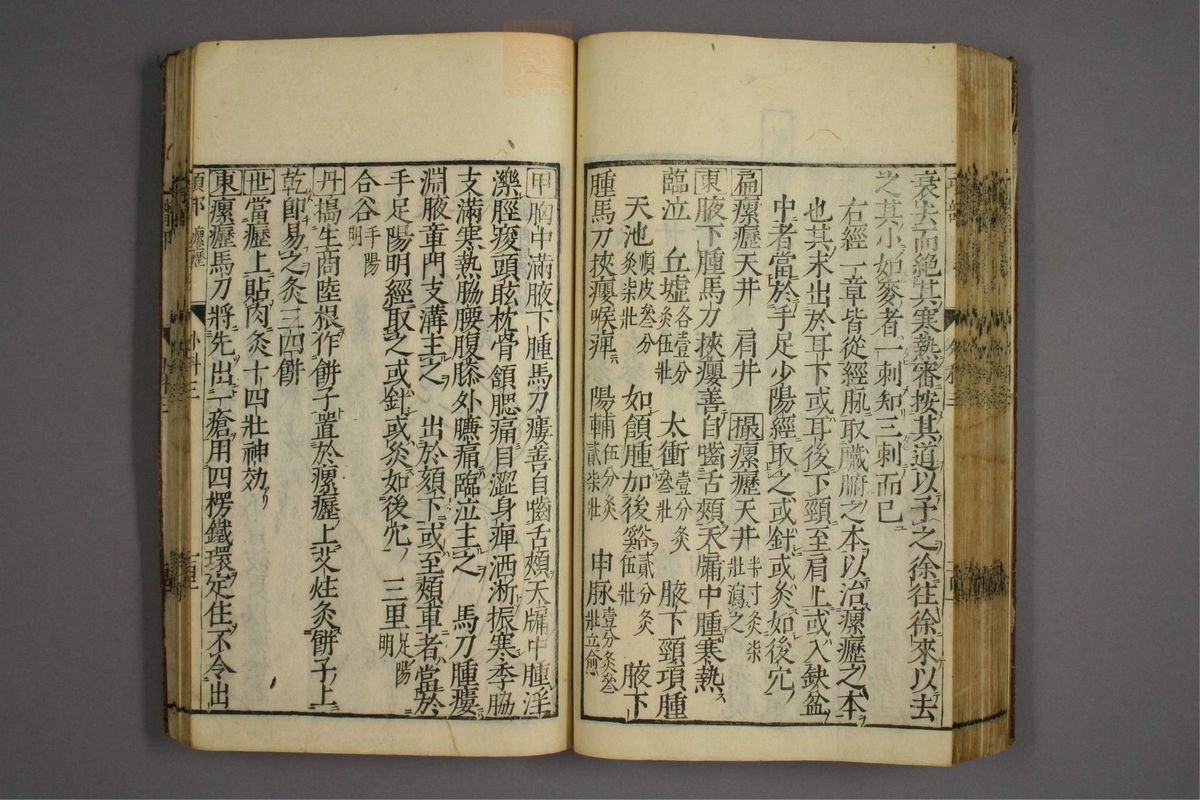 衰去而絕其寒熱審按其道以予之徐往徐來以去
之其小如麥者一刺知三刺而已
右經一章皆從經脉取臟腑之本以治瘰癧之本
也其末出於耳下或耳後下頸至肩上或入缺盆
中者當於手足少陽經取之或針或灸如後穴
扁瘰癧天井 肩井 撮瘰癧天井半寸灸柒壯瀉之
東腋下腫馬刀挾癭善自嚙舌頰天牖中腫寒熱
臨泣 丘墟各壹分灸伍壯 太衝壹分灸叁壯 腋下頸項腫
天池順皮叁分灸柒壯 如饋腫加後谿貳分灸伍壯 腋下
腫馬刀挾癭喉痺 陽輔伍分灸貳柒壯 申脉壹分灸叁壯立愈
甲胸中滿腋下腫馬刀瘻善自嚙舌頰天牖中腫淫
濼脛痠頭眩枕骨頷腮痛目澀身痺洒淅振寒季脇
支滿寒熱脇腰腹膝外臁痛臨泣主之 馬刀腫瘻
淵腋章門支溝主之 出於頦下或至頰車者當於
手足陽明經取之或針或灸如後穴 三里足陽明
合谷手陽明
丹搗生商陸根作餅子置於瘰癧上艾炷灸餅子上
乾卽易之灸三四餅
世當癧上貼肉灸十四壯神効
東瘰癧馬刀將先出一瘡用四楞鐵環定住不令出
瘰癧 外科三